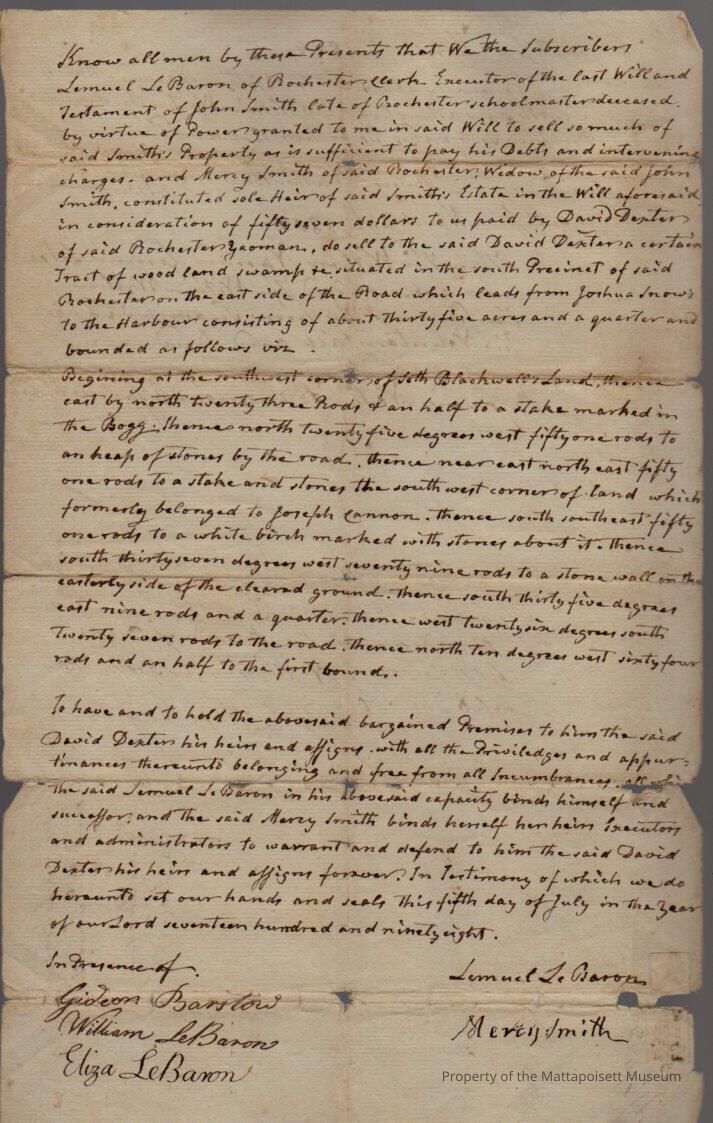 Know all men by these Presents that We the Subscribers
Lemuel LeBaron of Rochester Clerk Executor of the last Will and
Testament of John Smith late of Rochester schoolmaster deceased.
by virtue of Power granted to me in said Will to sell so much of
said Smith's Property as is sufficient to pay his Debts and intervening
charges. and Mercy Smith of said Rochester, Widow of the said John
Smith, constituted sole Heir of said Smith's Estate in the Will aforesaid
in consideration of fifty seven dollars to us paid by David Dexter
of said Rochester Yeoman, do sell to the said David Dexter a certain
Tract of wood land swamp &c situated in the south Precinct of said
Rochester on the east side of the Road which leads from Joshua Snow's
to the Harbour consisting of about thirty five acres and a quarter and
bounded as follows viz.
Begining at the southwest corner of Seth Blackwell's Land, thence
east by north twenty three Rods & an half to a stake marked in
the Bogg. thence north twenty five degrees west fifty one rods to
an heap of stones by the road. thence near east north east fifty
one rods to a stake and stones the south west corner of Land which
formerly belonged to Joseph Cannon. thence south southeast fifty
one rods to a white birch marked with stones about it. thence
south thirty seven degrees west seventy nine rods to a stone wall on the
easterly side of the cleared ground. thence south thirty five degrees
east nine rods and a quarter. thence west twenty six degrees south
twenty seven rods to the road. thence north ten degrees west sixty four
rods and an half to the first bounds.
To have and to hold the abovesaid bargained Premises to him the said
David Dexter his heirs and assigns. with all the Priviledges and appur-
tinances thereunto belonging and free from all Incumbrances. all
the said Lemuel LeBaron in his abovesaid capacity binds himself and
successor, and the said Mercy Smith binds herself her heirs Executors
and administrators to warrant and defend to him the said David
Dexter his heirs and assigns forever. In Testimony of which we do
hereunto set our hands and seals this fifth day of July in the Year
of our Lord seventeen hundred and ninety eight.
In Presence of
Lemuel Le Baron
Gideon Barstow
William LeBaron
Mercy Smith
Eliza LeBaron
Property of the Mattapoisett Museum